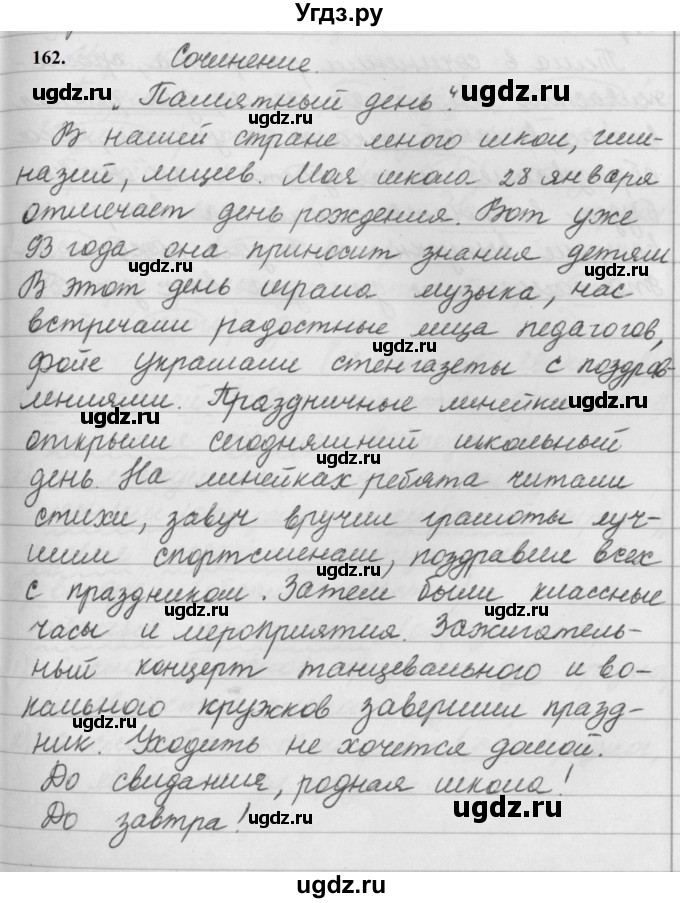 Угдз.ру
162. Сочинение.
„Памятный день“.
В нашей стране много школ, гим-
назий, лицеев. Моя школа 28 января
отмечает день рождения. Вот уже
93 года она приносит знания детям
В этот день играла музыка, нас
встречали радостные лица педагогов,
фойе украшали стенгазеты с поздрав-
лениями. Праздничные линейки
открыли сегодняшний школьный
день. На линейках ребята читали
стихи, завуч вручил грамоты луч-
шим спортсменам, поздравил всех
с праздником. Затем были классные
часы и мероприятия. Зажигатель-
ный концерт танцевального и во-
кального кружков завершил празд-
ник. Уходить не хочется домой.
До свидания, родная школа!
До завтра!
ugdz.ru